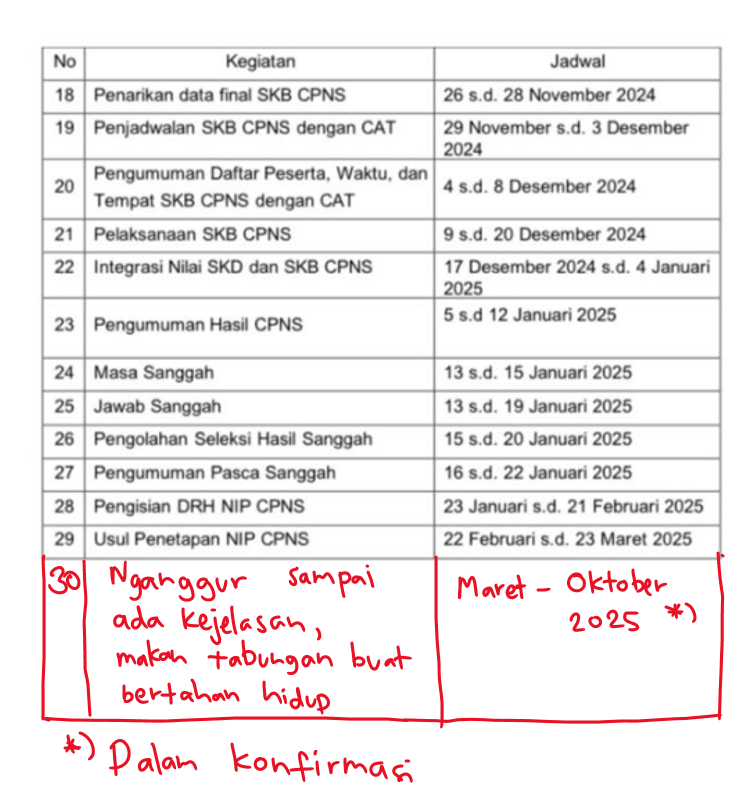 No Kegiatan Jadwal
18 Penarikan data final SKB CPNS 26 s.d. 28 November 2024
19 Penjadwalan SKB CPNS dengan CAT 29 November s.d. 3 Desember
2024
20 Pengumuman Daftar Peserta, Waktu, dan
Tempat SKB CPNS dengan CAT 4 s.d. 8 Desember 2024
21 Pelaksanaan SKB CPNS 9 s.d. 20 Desember 2024
22 Integrasi Nilai SKD dan SKB CPNS 17 Desember 2024 s.d. 4 Januari
2025
23 Pengumuman Hasil CPNS 5 s.d 12 Januari 2025
24 Masa Sanggah 13 s.d. 15 Januari 2025
25 Jawab Sanggah 13 s.d. 19 Januari 2025
26 Pengolahan Seleksi Hasil Sanggah 15 s.d. 20 Januari 2025
27 Pengumuman Pasca Sanggah 16 s.d. 22 Januari 2025
28 Pengisian DRH NIP CPNS 23 Januari s.d. 21 Februari 2025
29 Usul Penetapan NIP CPNS 22 Februari s.d. 23 Maret 2025
30 Nganggur sampai Maret - Oktober
ada kejelasan, 2025 *)
makan tabungan buat
bertahan hidup
*) Dalam konfirmasi